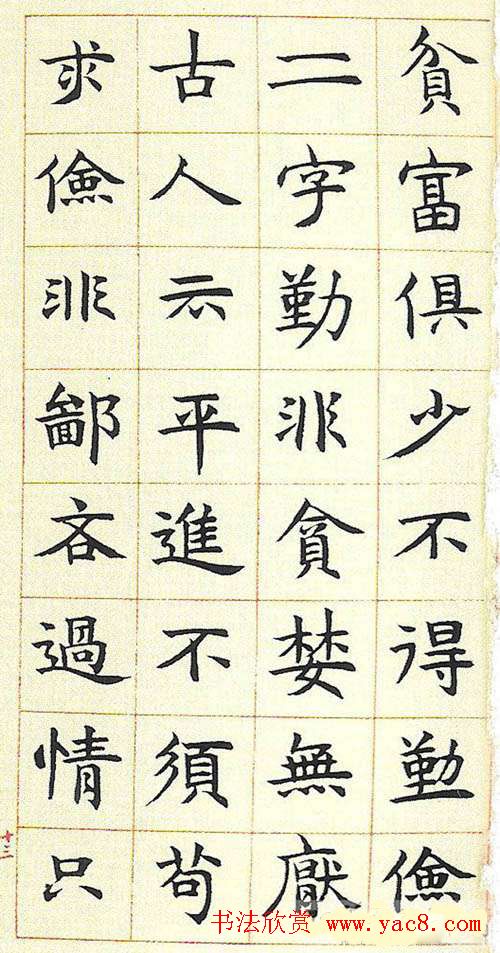 貧富俱少不得勤儉
二字勤非貪婪無厭
古人云平進不須苟
求儉非鄙吝過情只
十三
书法欣赏 www.yac8.com